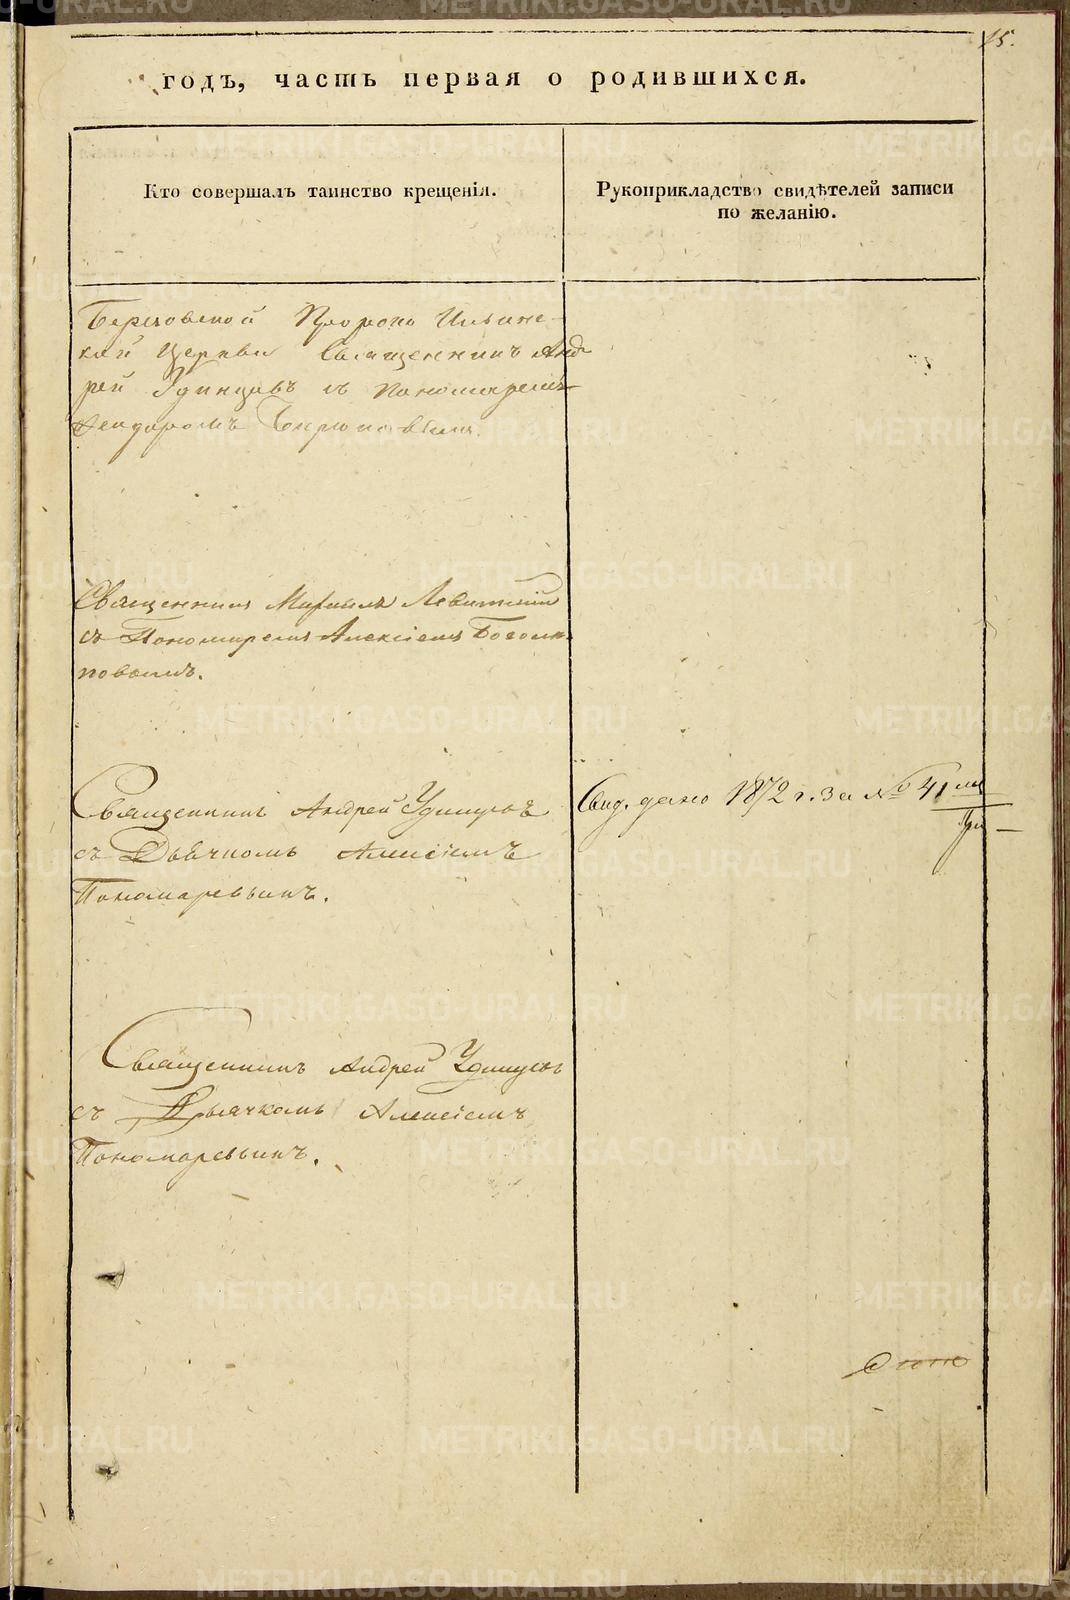 15.
годъ, часть первая о родившихся.
Кто совершалъ таинство крещенія.
Рукоприкладство свидѣтелей записи
по желанію.
Березовской Пророко Ильинс-
кой Церкви Священникъ Анд-
рей Удинцовъ съ Пономаремъ
Феодоромъ Бирюковымъ.
Священникъ Михаилъ Левитскій
съ Пономаремъ Алексіемъ Боголѣ-
повымъ.
Священникъ Андрей Удинцовъ
съ Дьячкомъ Алексіемъ
Пономаревымъ.
Свид. дано 1872 г. за № 41
Священникъ Андрей Удинцовъ
съ Дьячкомъ Алексіемъ
Пономаревымъ.
METRIKI.GASO-URAL.RU